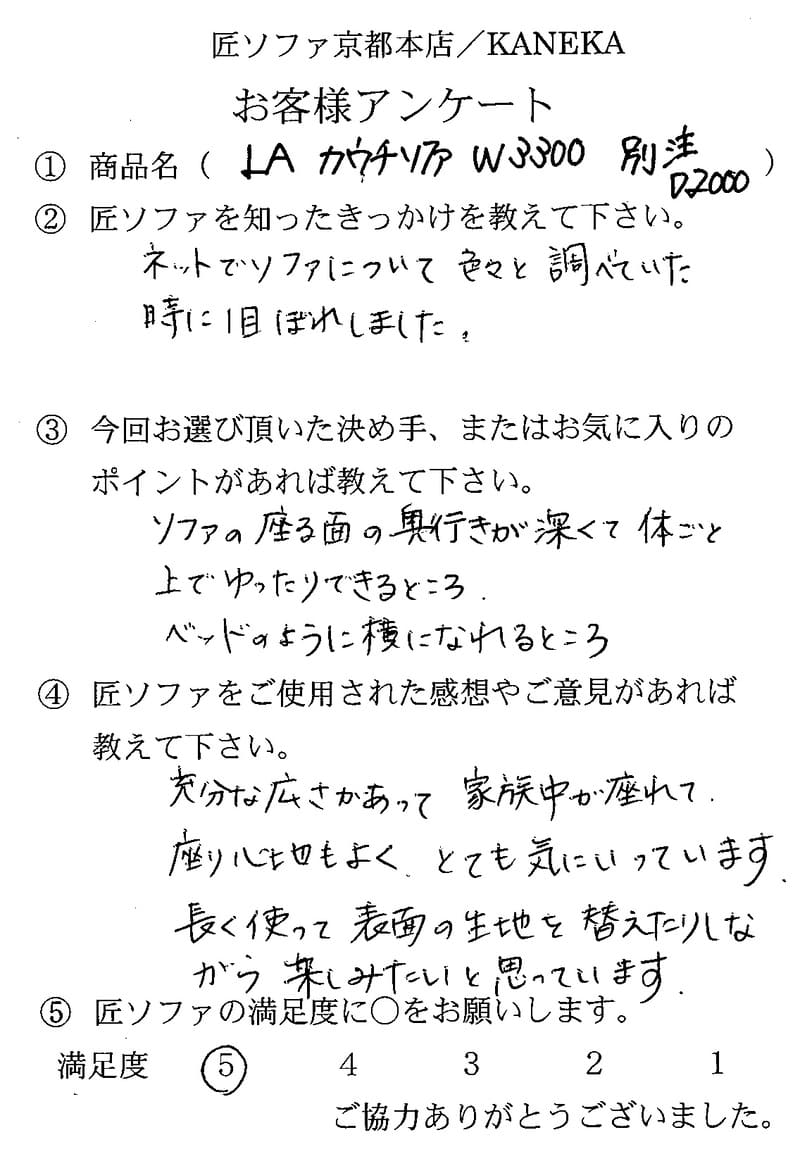 匠ソファ京都本店／KANEKA
お客様アンケート
① 商品名（ LA カウチソファ W3300 別注 D2000 ）
② 匠ソファを知ったきっかけを教えて下さい。
ネットでソファについて 色々と 調べていた
時に 1目ぼれしました。
③ 今回お選び頂いた決め手、またはお気に入りの
ポイントがあれば教えて下さい。
ソファの 座る面の奥行きが深くて 体ごと
上で ゆったりできるところ.
ベッドのように横になれるところ
④ 匠ソファをご使用された感想やご意見があれば
教えて下さい。
充分な広さがあって 家族中が座れて.
座り心地もよく、とても気にいっています.
長く使って 表面の生地を 替えたりしな
がら 楽しみたいと思っています.
⑤ 匠ソファの満足度に○をお願いします。
満足度 5 4 3 2 1
ご協力ありがとうございました。